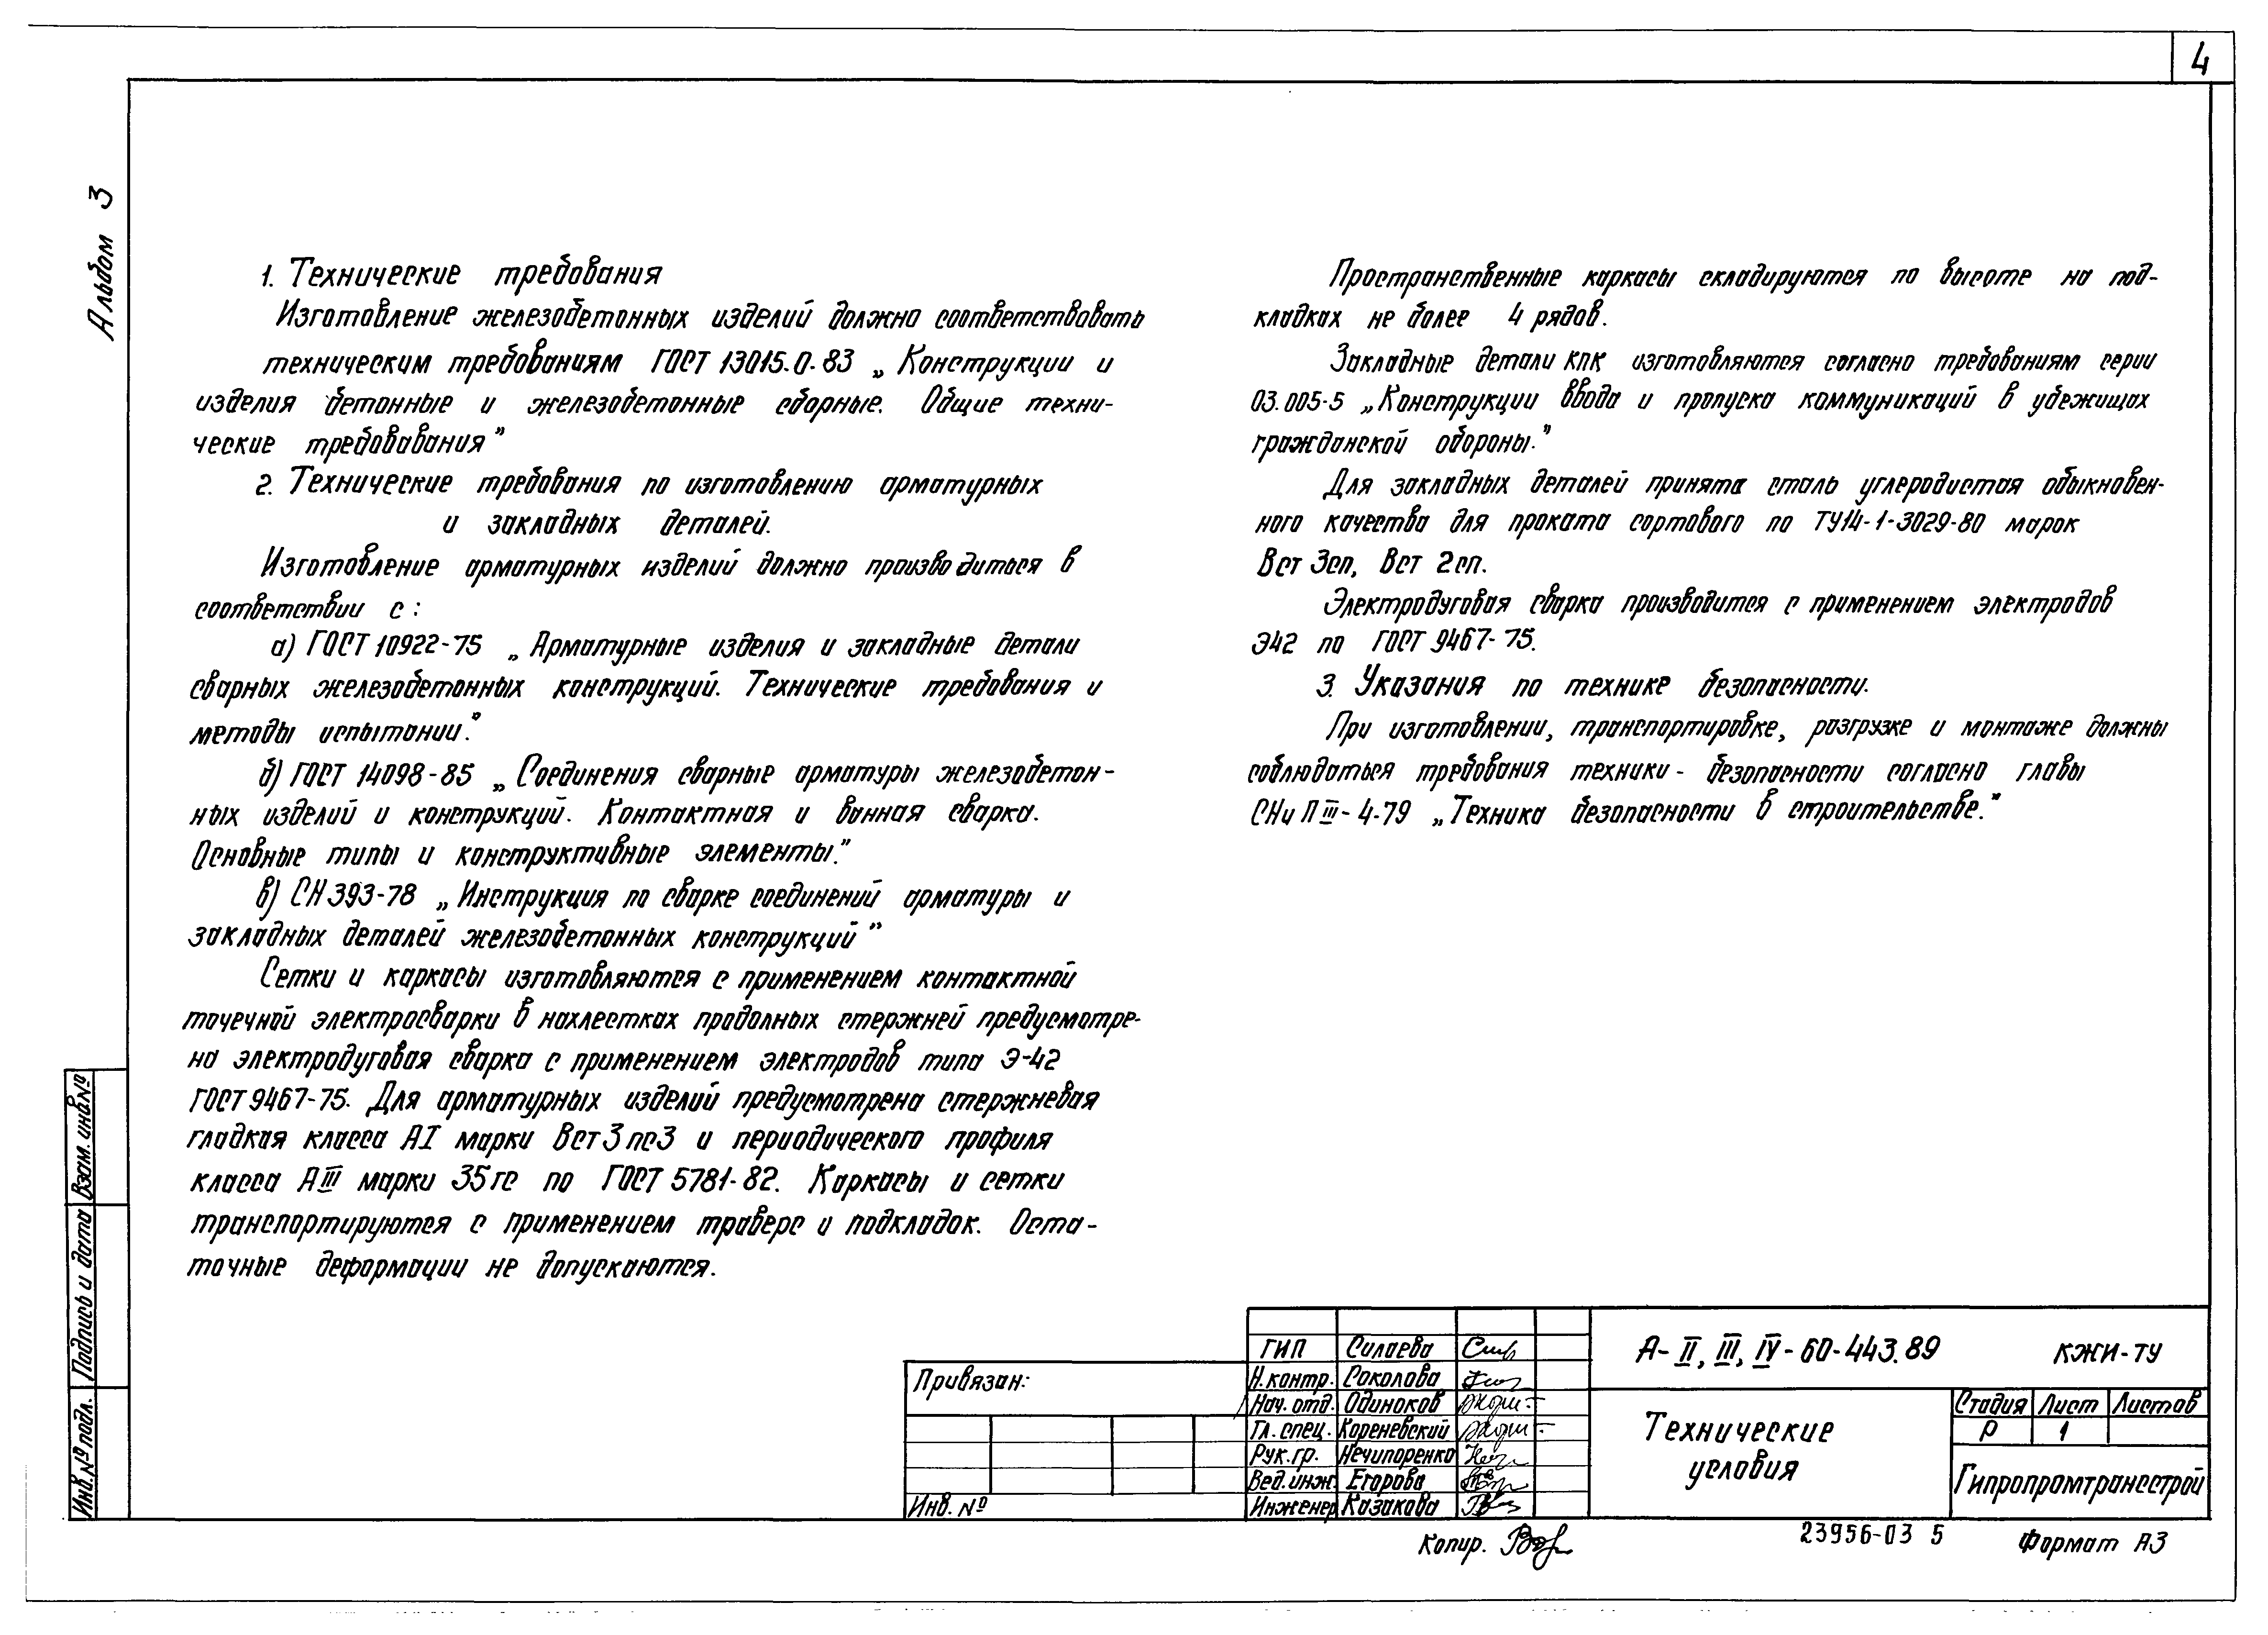 4
Альбом 3
1. Технические требования
Изготовление железобетонных изделий должно соответствовать
техническим требованиям ГОСТ 13015.0-83 „Конструкции и
изделия бетонные и железобетонные сборные. Общие техни-
ческие требовавания”
2. Технические требования по изготовлению арматурных
и закладных деталей.
Изготовление арматурных изделий должно производиться в
соответствии с:
а) ГОСТ 10922-75 „Арматурные изделия и закладные детали
сварных железобетонных конструкций. Технические требования и
методы испытании”.
б) ГОСТ 14098-85 „Соединения сварные арматуры железобетон-
ных изделий и конструкций. Контактная и ванная сварка.
Основные типы и конструктивные элементы.”
в) СН 393-78 „Инструкция по сварке соединений арматуры и
закладных деталей железобетонных конструкций”
Сетки и каркасы изготовляются с применением контактной
точечной электросварки в нахлестках продолных стержней предусмотре-
на электродуговая сварка с применением электродов типа Э-42
ГОСТ 9467-75. Для арматурных изделий предусмотрена стержневая
гладкая класса АI марки Вст3пс3 и периодического профиля
класса АIII марки 35гс по ГОСТ 5781-82. Каркасы и сетки
транспортируются с применением траверс и подкладок. Оста-
точные деформации не допускаются.
Пространственные каркасы складируются по высоте на под-
кладках не более 4 рядов.
Закладные детали КПК изготовляются согласно требованиям серии
03.005-5 „Конструкции ввода и пропуска коммуникаций в убежищах
гражданской обороны.”
Для закладных деталей принята сталь углеродистая обыкновен-
ного качества для проката сортового по ТУ14-1-3029-80 марок
Вст 3сп, Вст 2сп.
Электродуговая сварка производится с применением электродов
Э42 по ГОСТ 9467-75.
3. Указания по технике безопасности.
При изготовлении, транспортировке, разгрузке и монтаже должны
соблюдаться требования техники- безопасности согласно главы
СНиП III-4-79 „Техника безопасности в строительстве.”
Взам. инв №
Подпись и дата
Инв. № подл.
Привязан:
Инв. №
ГИП Силаева
Н.контр. Соколова
Нач. отд. Одиноков
Гл. спец. Кореневский
Рук.гр. Нечипоренко
Вед.инж. Егорова
Инженер Казакова
А-II, III, IV-60-443.89 КЖИ-ТУ
Технические
условия
Стадия Лист Листов
Р 1
Гипропромтрансстрой
Копир.
23956-03 5
Формат А3